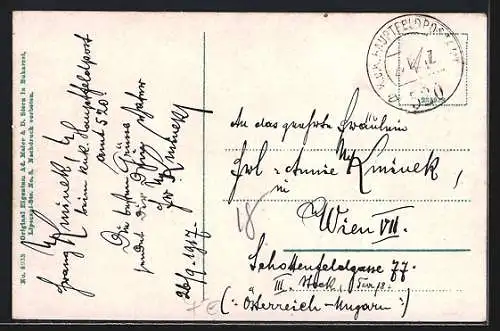 No. 6935 Original Eigentum Ad. Maier & D. Stern in Bukarest,
Lipscani-Str. No. 8. Nachdruck verboten.
Franz Kminek
beim k.u.k. Hauptfeldpost
amt 520
Die besten Grüsse
sendet dir Vater
Kminek
26/9. 1917
K.u.K. HAUPTFELDPOSTAMT
520
An das geehrte Fräulein
Frl. Annie Kminek
in
18
Wien VII.
Schottenfeldgasse 77
III. Stock, Tür 18.
(: Österreich-Ungarn :)